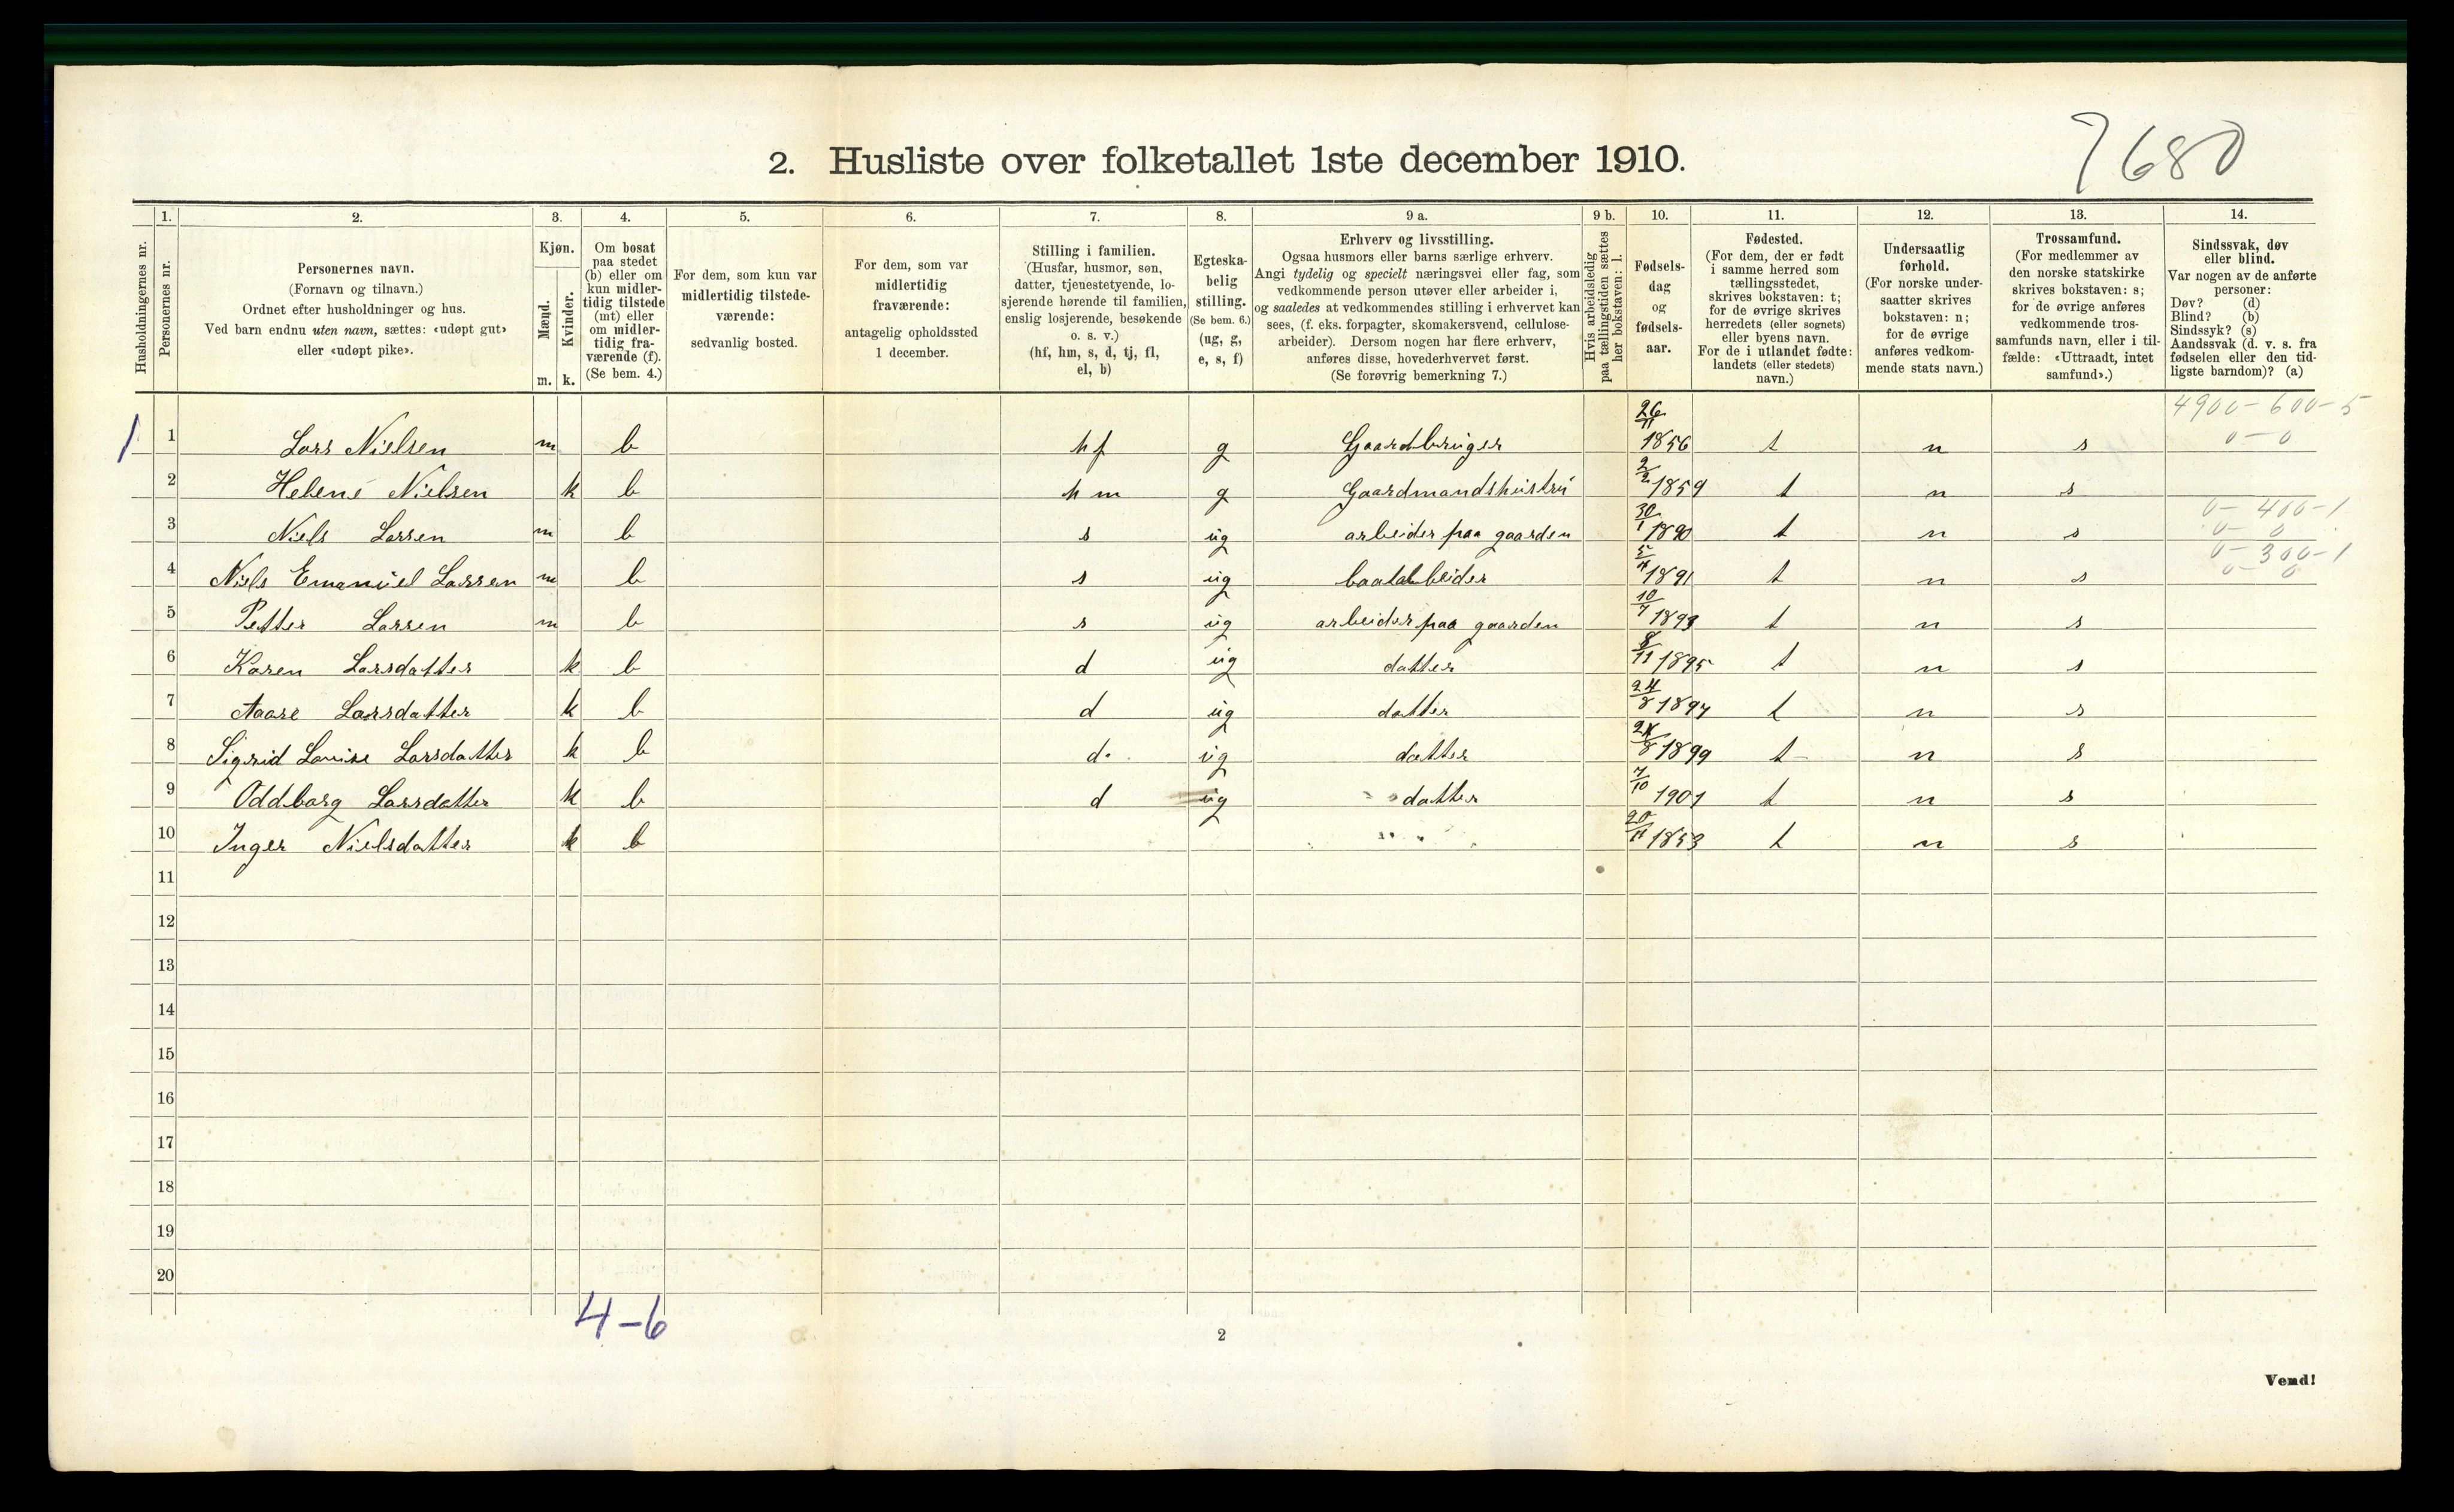 7680
2. Husliste over folketallet 1ste december 1910.
Husholdningernes nr.
1. Personernes nr.
2. Personernes navn. (Fornavn og tilnavn.) Ordnet efter husholdninger og hus. Ved barn endnu uten navn, sættes: «udøpt gut» eller «udøpt pike».
3. Kjøn. Mænd. m. Kvinder. k.
4. Om bosat paa stedet (b) eller om kun midlertidig tilstede (mt) eller om midlertidig fraværende (f). (Se bem. 4.)
5. For dem, som kun var midlertidig tilstedeværende: sedvanlig bosted.
6. For dem, som var midlertidig fraværende: antagelig opholdssted 1 december.
7. Stilling i familien. (Husfar, husmor, søn, datter, tjenestetyende, losjerende hørende til familien, enslig losjerende, besøkende o. s. v.) (hf, hm, s, d, tj, fl, el, b)
8. Egteskabelig stilling. (Se bem. 6.) (ug, g, e, s, f)
9 a. Erhverv og livsstilling. Ogsaa husmors eller barns særlige erhverv. Angi tydelig og specielt næringsvei eller fag, som vedkommende person utøver eller arbeider i, og saaledes at vedkommendes stilling i erhvervet kan sees, (f. eks. forpagter, skomakersvend, cellulosearbeider). Dersom nogen har flere erhverv, anføres disse, hovederhvervet først. (Se forøvrig bemerkning 7.)
9 b. Hvis arbeidsledig paa tællingstiden sættes her bokstaven: l.
10. Fødselsdag og fødselsaar.
11. Fødested. (For dem, der er født i samme herred som tællingsstedet, skrives bokstaven: t; for de øvrige skrives herredets (eller sognets) eller byens navn. For de i utlandet fødte: landets (eller stedets) navn.)
12. Undersaatlig forhold. (For norske undersaatter skrives bokstaven: n; for de øvrige anføres vedkommende stats navn.)
13. Trossamfund. (For medlemmer av den norske statskirke skrives bokstaven: s; for de øvrige anføres vedkommende trossamfunds navn, eller i tilfælde: «Uttraadt, intet samfund».)
14. Sindssvak, døv eller blind. Var nogen av de anførte personer: Døv? (d) Blind? (b) Sindssyk? (s) Aandssvak (d. v. s. fra fødselen eller den tidligste barndom)? (a)
4900-600-5
0-0
1 1 Lars Nielsen m b hf g Gaardbruger 26/11 1856 t n s
2 Helene Nielsen k b hm g Gaardmandshustru 2/2 1859 t n s
0-400-1
0-0
3 Niels Larsen m b s ug arbeider paa gaarden 30/1 1890 t n s
0-300-1
0-0
4 Niels Emanuel Larsen m b s ug 1891 t n s
5 Petter Larsen m b s ug arbeider paa gaarden 10/7 1893 t n s
6 Karen Larsdatter k b d ug datter 8/11 1895 t n s
7 Aase Larsdatter k b d ug datter 24/8 1897 t n s
8 Sigrid Louise Larsdatter k b d. ug datter 1899 t n s
9 Oddborg Larsdatter k b d ug datter 7/10 1901 t n s
10 Inger Nielsdatter k b 20/11 1853 t n s
11
12
13
14
15
16
17
18
19
20
4-6
2
Vend!